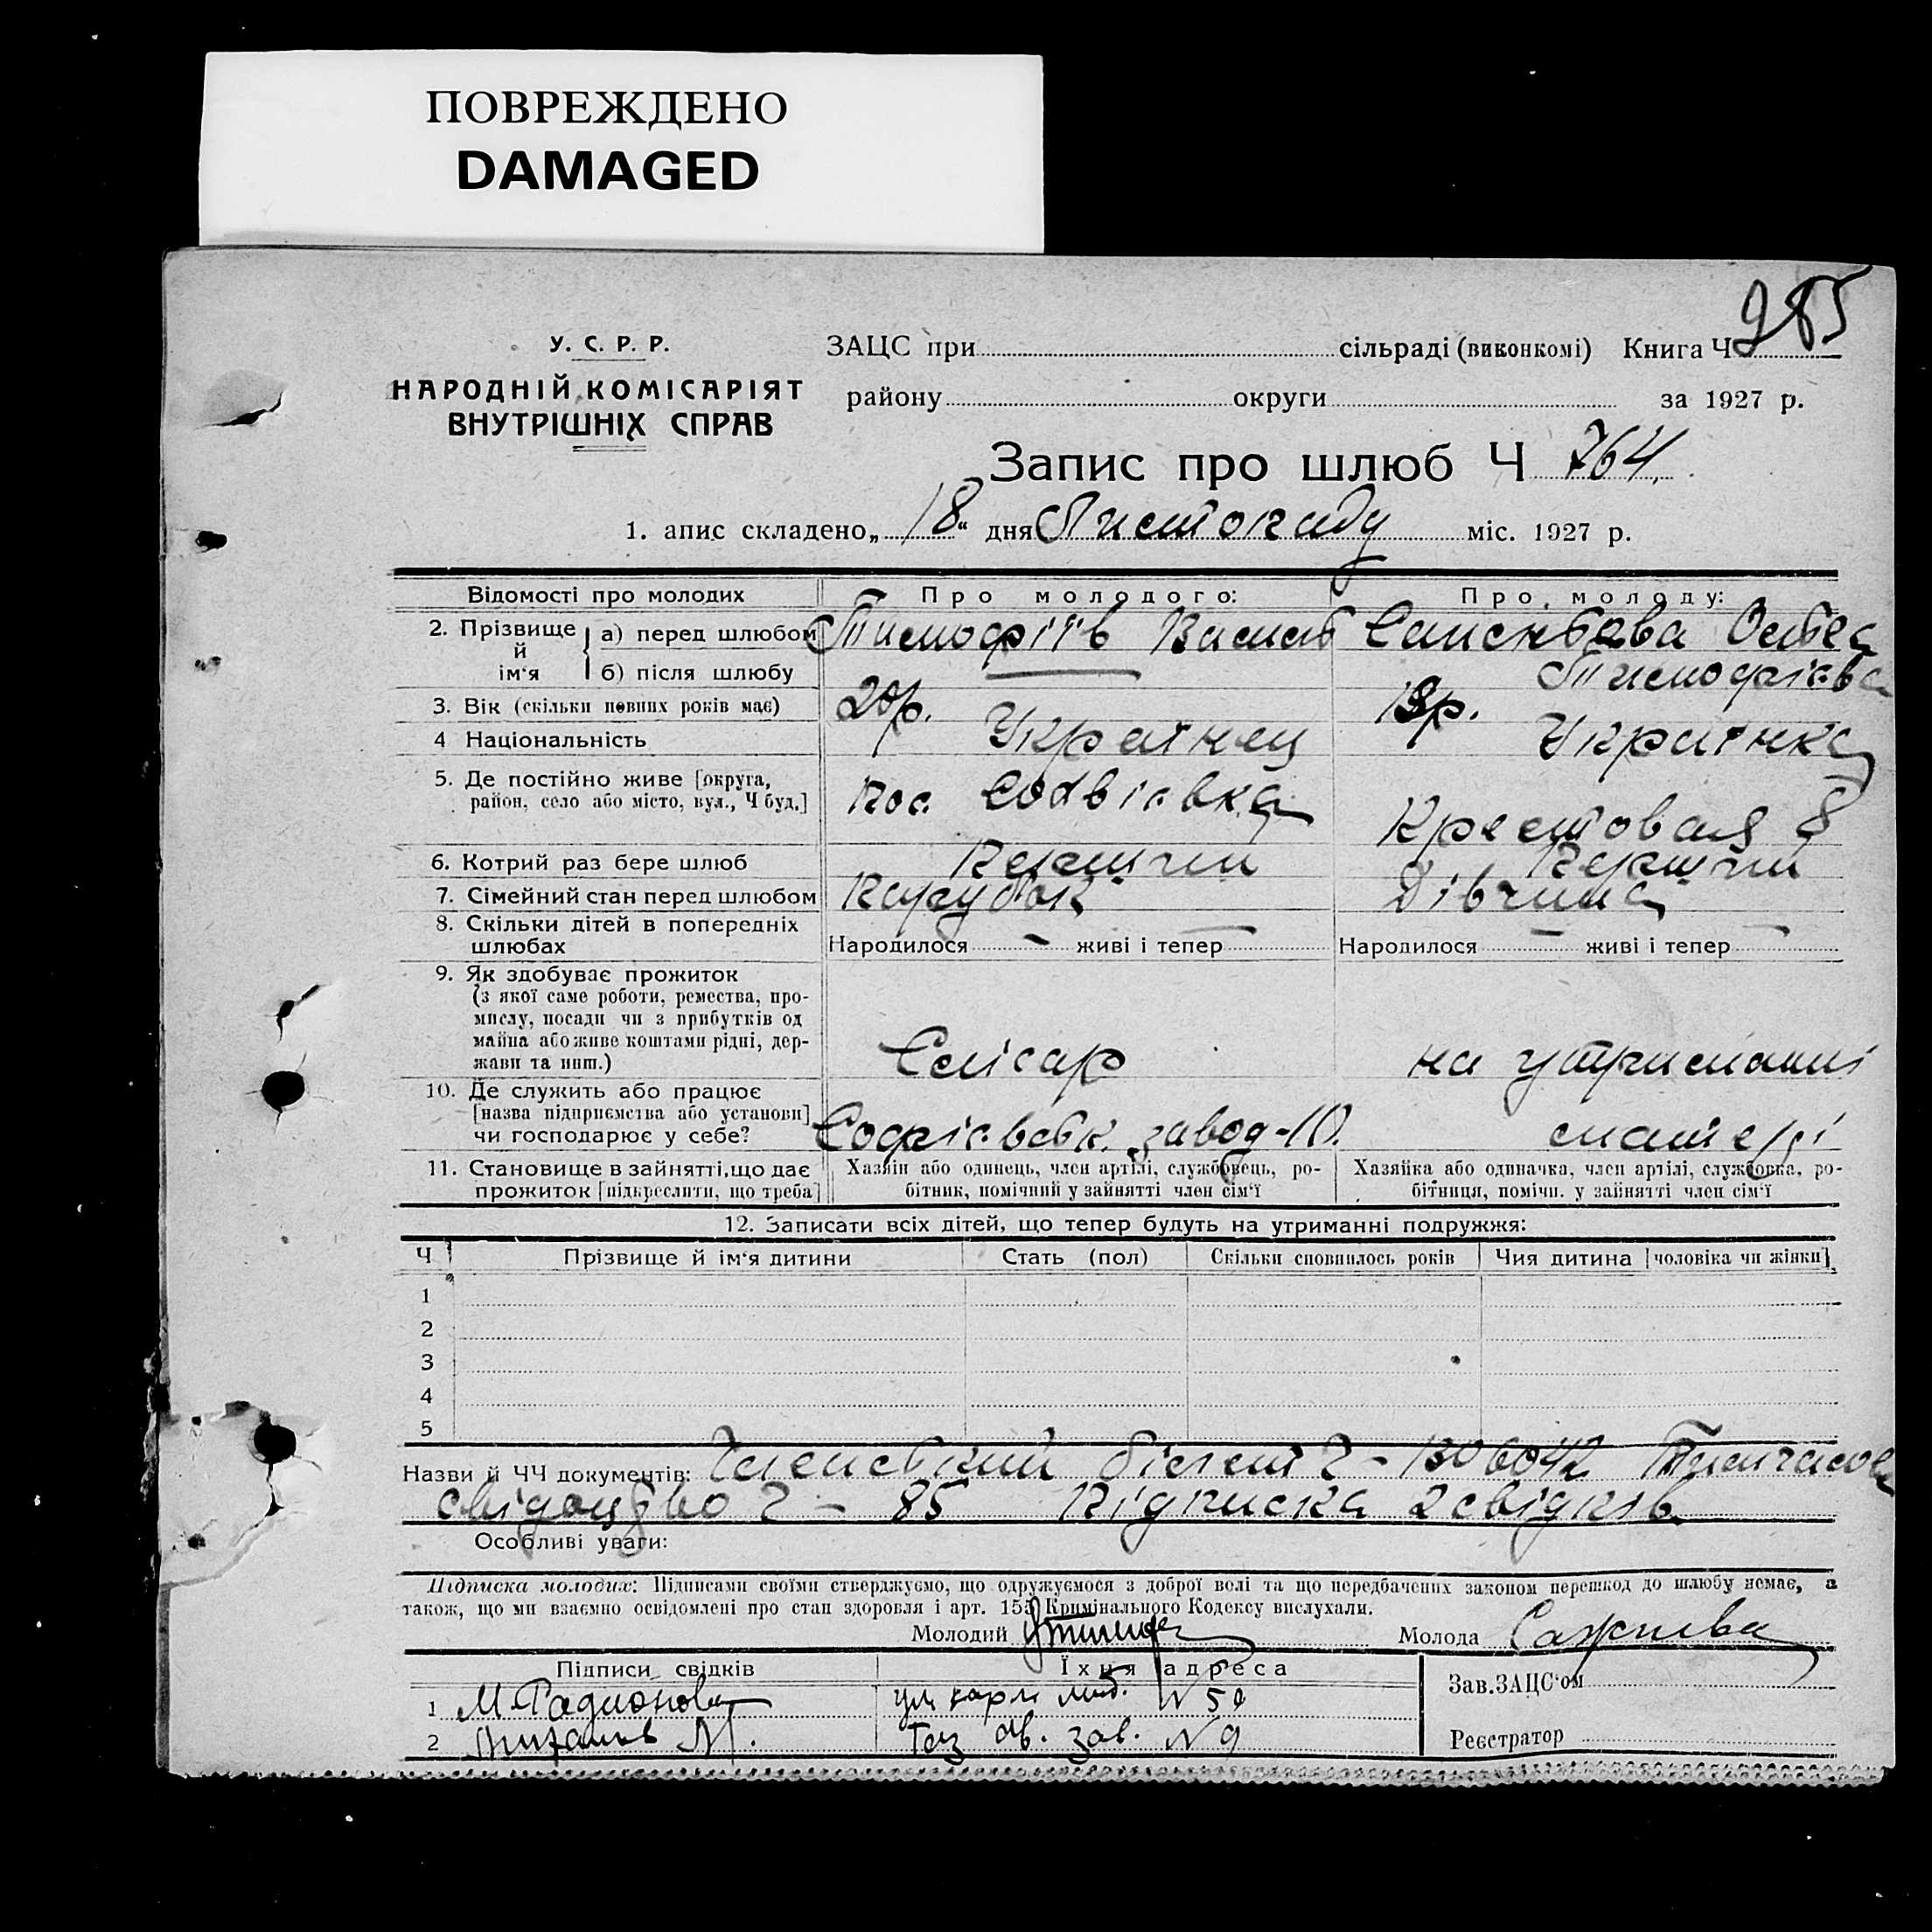 ПОВРЕЖДЕНО
DAMAGED
285
У. С. Р. Р.
НАРОДНІЙ КОМІСАРІЯТ
ВНУТРІШНІХ СПРАВ
ЗАЦС при сільраді (виконкомі) Книга Ч
району округи за 1927 р.
Запис про шлюб Ч 764
1. апис складено „18“ дня Листопаду міс. 1927 р.
Відомості про молодих Про молодого: Про молоду:
2. Прізвище й ім'я а) перед шлюбом Тимофіїв
б) після шлюбу Тимофієва
3. Вік (скільки повних років має) 20р. 18р.
4 Національність Українец Українка
5. Де постійно живе [округа,
район, село або місто, вул., Ч буд.] пос. Софієвка Крестовая 8
6. Котрий раз бере шлюб Перший Перший
7. Сімейний стан перед шлюбом Парубок Дівчина
8. Скільки дітей в попередніх
шлюбах Народилося — живі і тепер — Народилося — живі і тепер —
9. Як здобуває прожиток
(з якої саме роботи, ремества, про-
мислу, посади чи з прибутків од
майна або живе коштами рідні, дер-
жави та инш.) Слісар на утриманні
10. Де служить або працює
[назва підприємства або установи]
чи господарює у себе? Софієвськ. завод-10. матері
11. Становище в зайнятті, що дає
прожиток [підкреслити, що треба]
Хазяїн або одинець, член артілі, службовець, ро-
бітник, помічний у зайнятті член сім'ї
Хазяйка або одиначка, член артілі, службовка, ро-
бітниця, помічн. у зайнятті член сім'ї
12. Записати всіх дітей, що тепер будуть на утриманні подружжя:
Ч Прізвище й ім'я дитини Стать (пол) Скільки сповнилось років Чия дитина [чоловіка чи жінки]
1
2
3
4
5
Назви й ЧЧ документів: Членський білет Ч - 1306042 Тимчасове
свідоцтво Ч - 85 Підписка 2 свідків
Особливі уваги:
Підписка молодих: Підписами своїми стверджуємо, що одружуємося з доброї волі та що передбачених законом перешкод до шлюбу немає, а
також, що ми взаємно освідомлені про стан здоровля і арт. 155 Кримінального Кодексу вислухали.
Молодий Молода
Підписи свідків Їхня адреса Зав. ЗАЦС'ом
1 М. Радионова ул карл либ. N 50
2 М. зав. N 9 Реєстратор